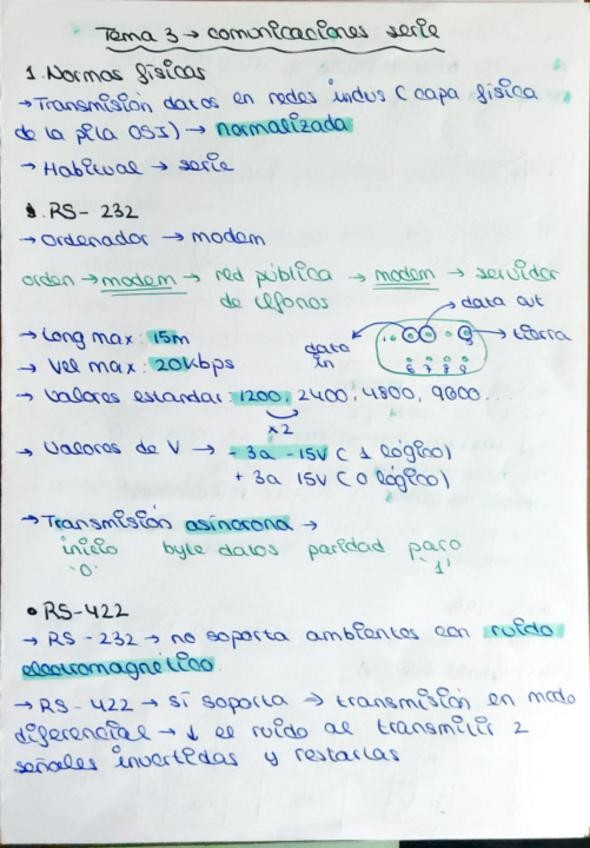 Tema 3 → comunicaciones serie
1. Normas físicas
→ Transmisión datos en redes indus (capa física
de la pila OSI) → normalizada
→ Habitual → serie
RS-232
→ ordenador → modem
orden → modem → red pública → modem → servidor
de tlfonos
data out
→ Long max: 15m
1 5 → tierra
data in
→ Vel max: 20Kbps
6 7 8 9
→ Valores estandar: 1200, 2400, 4800, 9600...
x2
→ Valores de V → - 3 a -15V (1 lógico)
+ 3a 15V (0 lógico)
→ Transmisión asíncrona →
inicio byte datos paridad paro
'0' '1'
• RS-422
→ RS-232 → no soporta ambientes con ruido
electromagnético.
→ RS-422 → sí soporta → transmisión en modo
diferencial → ↓ el ruido al transmitir 2
señales invertidas y restarlas